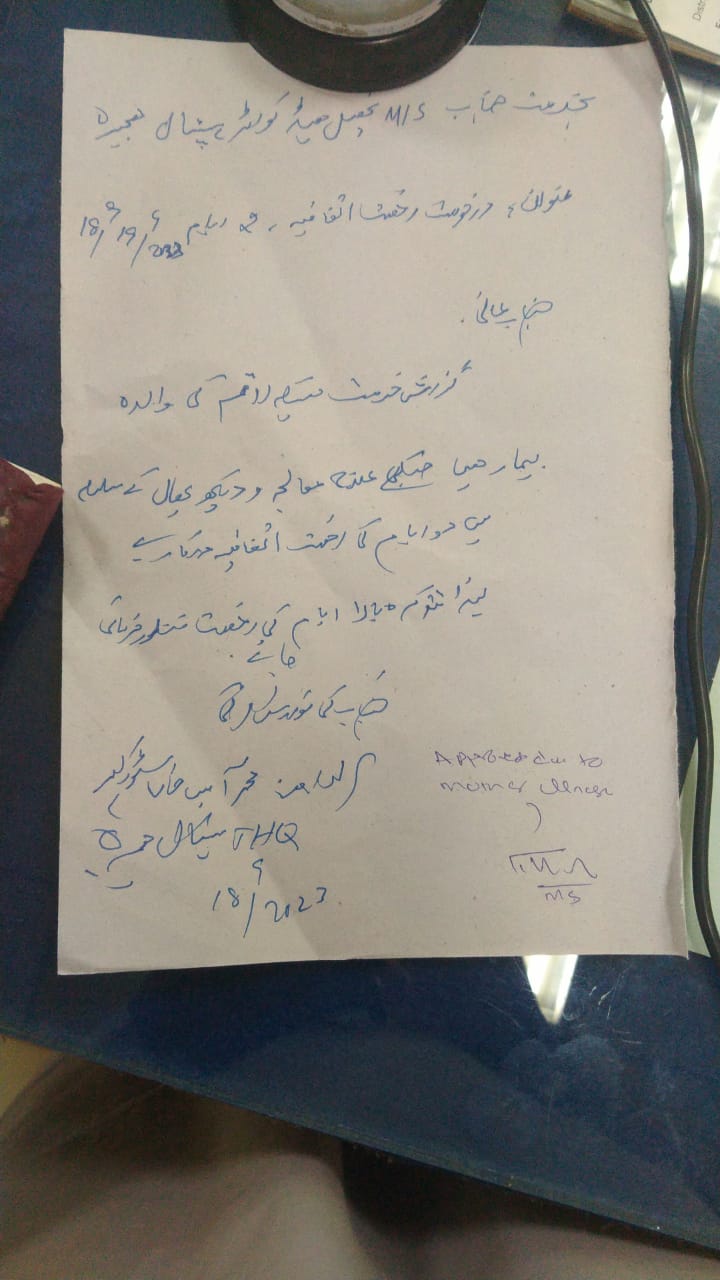 بخدمت جناب M/S تحصیل ہیڈ کوارٹر ہسپتال ہجیرہ
عنوان؛ درخواست رخصت اتفاقیہ ، 2 ایام 18/9 19/9/2023
جناب عالی.
گزارش خدمت ہیکہ راقم کی والدہ
بیمار ہیں جنکے علاج معالجہ و دیکھ بھال کے سلسلہ
میں دو ایام کی رخصت اتفاقیہ درکار ہے
لہذا ایام کی رخصت منظور فرمائی
جائے.
جناب کی نوازش ہوگی
العارض محمد خان سٹور کیپر
THQ ہسپتال ہجیرہ
18/9/2023
Approved due to
mother illness
MS
Distri